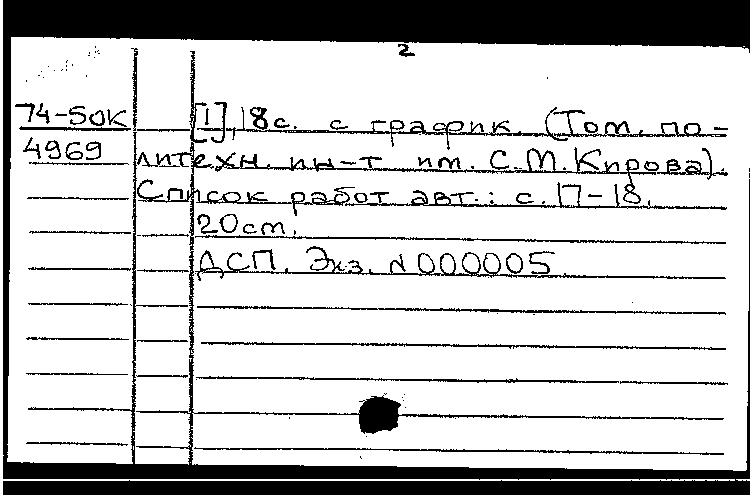 2
74-50К
4969
[I],18с. с график. (Том. по-
литехн. ин-т им. С.М.Кирова).
Список работ авт.: с.17-18.
20см.
ДСП. Экз. №000005.